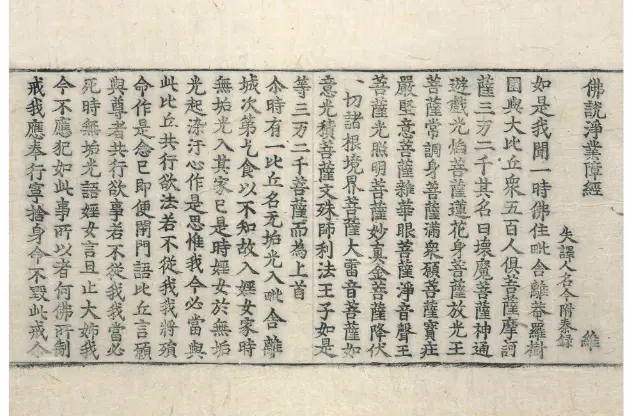 佛說淨業障經 維
失譯人名今附秦錄
如是我聞一時佛住毗舍離菴羅樹
園與大比丘衆五百人俱菩薩摩訶
薩三万二千其名曰壞魔菩薩神通
遊戲光焰菩薩蓮花身菩薩放光王
菩薩常調身菩薩滿衆願菩薩寶莊
嚴堅意菩薩雜華眼菩薩淨音聲王
菩薩光照明菩薩妙真金菩薩降伏
一切諸根境界菩薩大雷音菩薩如
意光積菩薩文殊師利法王子如是
等三万二千菩薩而為上首
尒時有一比丘名无垢光入毗舍離
城次第乞食以不知故入婬女家時
無垢光入其家已是時婬女於無垢
光起染汙心作是思惟我今必當與
此比丘共行欲法若不從我我將殞
命作是念已即便閉門語比丘言願
與尊者共行欲事若不從我我當必
死時無垢光語婬女言且止大姊我
今不應犯如此事所以者何佛所制
戒我應奉行寧捨身命不毀此戒今